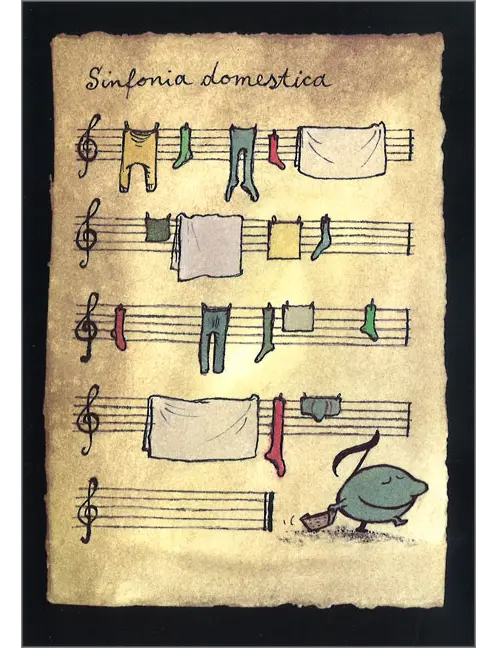 Sinfonia domestica